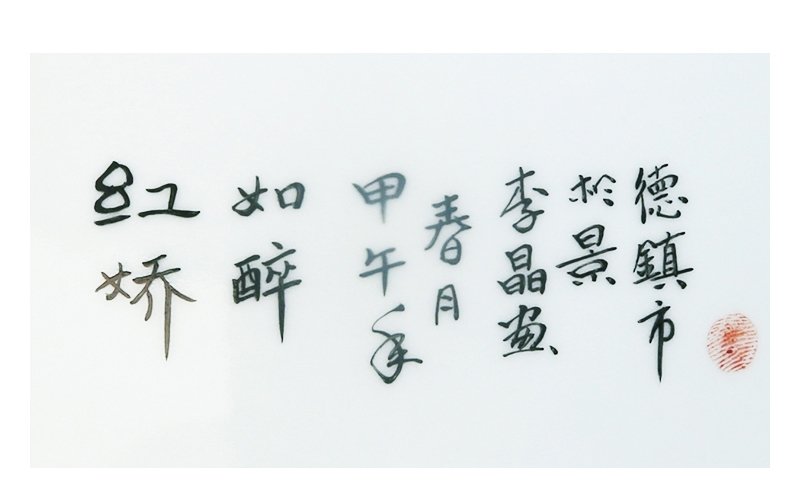 红娇
如醉
甲午年
春月
李晶畫
於景
德鎮市